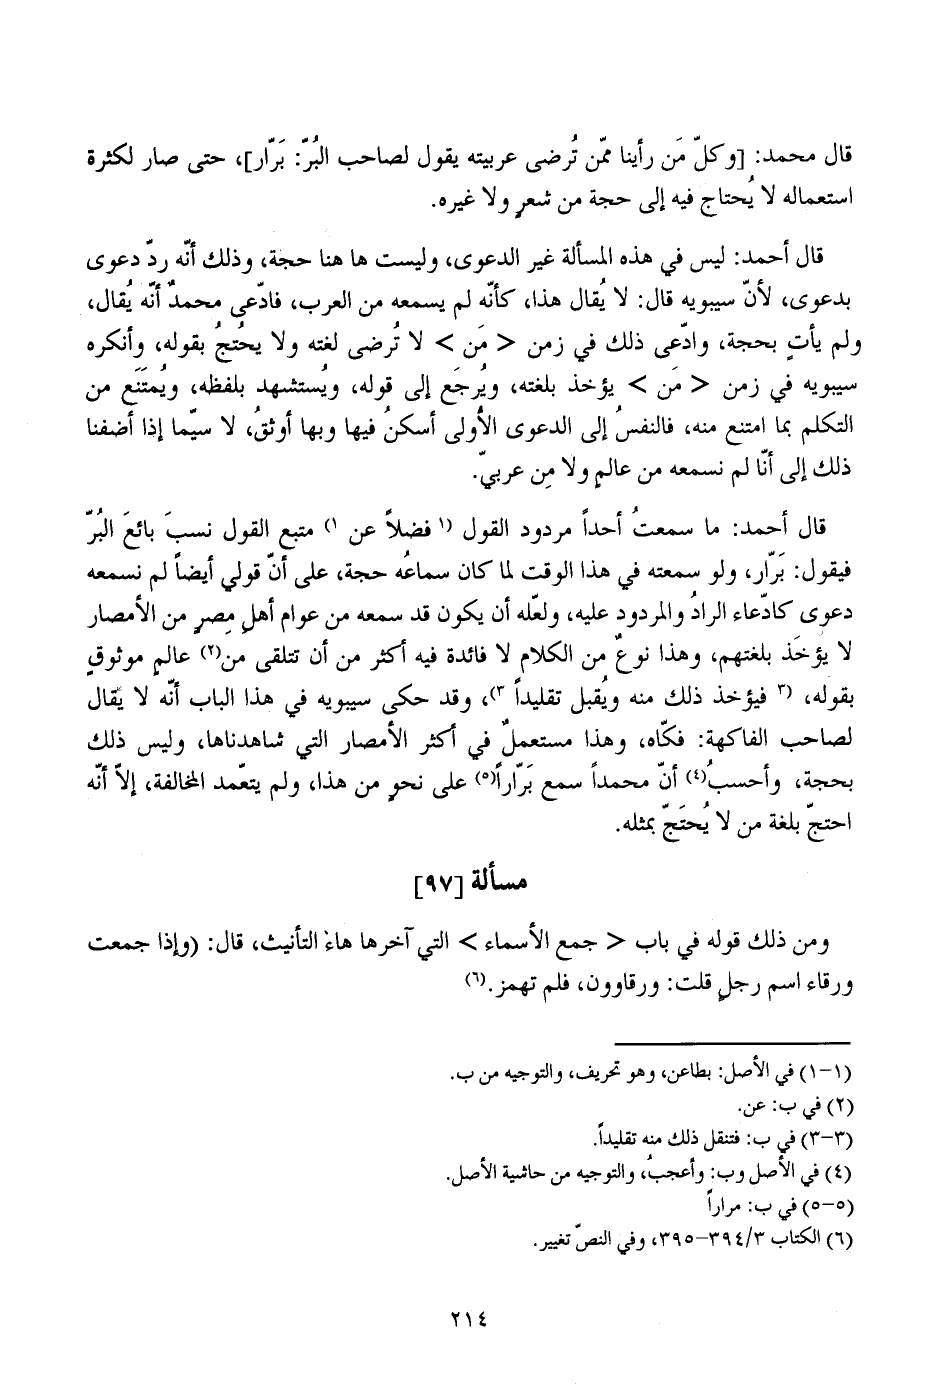 قال محمد: [وكلّ مَن رأينا ممّن تُرضى عربيته يقول لصاحب البُرّ: بَرّار]، حتى صار لكثرة
استعماله لا يُحتاج فيه إلى حجة من شعرٍ ولا غيره.
قال أحمد: ليس في هذه المسألة غير الدعوى، وليست ها هنا حجة، وذلك أنّه ردّ دعوى
بدعوى، لأنّ سيبويه قال: لا يُقال هذا، كأنّه لم يسمعه من العرب، فادّعى محمدٌ أنّه يُقال،
ولم يأتِ بحجة، وادّعى ذلك في زمن < مَن > لا تُرضى لغته ولا يحُتجُ بقوله، وأنكره
سيبويه في زمن < مَن > يؤخذ بلغته، ويُرجَع إلى قوله، ويُستشهد بلفظه، ويُمتَنَع من
التكلم بما امتنع منه، فالنفسُ إلى الدعوى الأُولى أسكنُ فيها وبها أوثقُ، لا سيّما إذا أضفنا
ذلك إلى أنّا لم نسمعه من عالمٍ ولا مِن عربيّ.
قال أحمد: ما سمعتُ أحداً مردود القول (١ فضلاً عن ١) متبع القول نسبَ بائعَ البُرّ
فيقول: بَرّار، ولو سمعته في هذا الوقت لما كان سماعُه حجة، على أنّ قولي أيضاً لم نسمعه
دعوى كادّعاء الرادُ والمردود عليه، ولعلّه أن يكون قد سمعه من عوام أهلِ مِصرٍ من الأمصار
لا يؤخَذ بلغتهم، وهذا نوعٌ من الكلام لا فائدة فيه أكثر من أن تتلقى من(٢) عالمٍ موثوقٍ
بقوله، (٣ فيؤخذ ذلك منه ويُقبل تقليداً ٣)، وقد حكى سيبويه في هذا الباب أنّه لا يُقال
لصاحب الفاكهة: فكّاه، وهذا مستعملٌ في أكثر الأمصار التي شاهدناها، وليس ذلك
بحجة، وأحسبُ(٤) أنّ محمداً سمع بَرّاراً(٥) على نحوٍ من هذا، ولم يتعّمد المخالفة، إلاّ أنّه
احتجّ بلغة من لا يُحتَجّ بمثله.
مسألة [٩٧]
ومن ذلك قوله في باب < جمع الأسماء > التي آخرها هاءُ التأنيث، قال: (وإذا جمعت
ورقاء اسم رجلٍ قلت: ورقاوون، فلم تهمز.(٦)
(١-١) في الأصل: بطاعن، وهو تحريف، والتوجيه من ب.
(٢) في ب: عن.
(٣-٣) في ب: فتنقل ذلك منه تقليداً.
(٤) في الأصل وب: وأعجبُ، والتوجيه من حاشية الأصل.
(٥-٥) في ب: مراراً
(٦) الكتاب ٣٩٤/٣-٣٩٥، وفي النصّ تغيير.
٢١٤